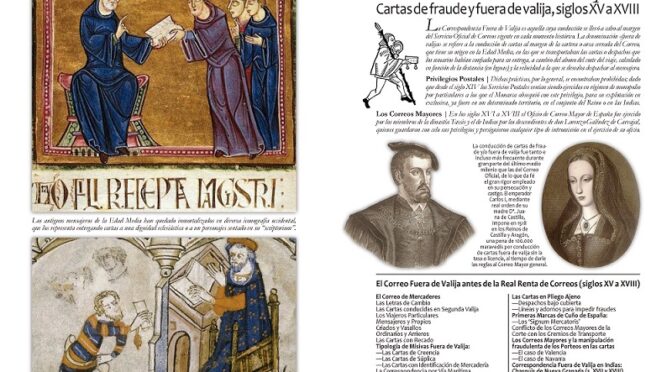 TA QFIL RECEPTA MAGISTRI:
Los antiguos mensajeros de la Edad Media han quedado inmortalizados en diversa iconografía occidental,
que los representa entregando cartas a una dignidad eclesiástica o a un personaje sentado en su "scriptorium".
Cartas de fraude y fuera de valija, siglos XV a XVIII
La Correspondencia Fuera de Valija es aquella cuya conducción se llevó a cabo al margen
del Servicio Oficial de Correos vigente en cada momento histórico. La denominación «fuera de
valija» se refiere a la conducción de cartas al margen de la cartera o saca cerrada del Correo,
que tiene su origen en la Edad Media, en las que se transportaban las cartas o despachos que
los usuarios habían confiado para su entrega, a cambio del abono del coste del viaje, calculado
en función de la distancia (en leguas) y la velocidad a la que se deseaba despachar al mensajero.
Privilegios Postales | Dichas prácticas, por lo general, se encontraban prohibidas; dado
que desde el siglo XIV los Servicios Postales venían siendo ejercidos en régimen de monopolio
por particulares a los que el Monarca otorgó con este privilegio, para su explotación en
exclusiva, ya fuere en un determinado territorio, en el conjunto del Reino o en las Indias.
Los Correos Mayores | En los siglos XVI a XVIII el Oficio de Correo Mayor de España fue ejercido
por los miembros de la dinastía Tassis y el de Indias por los descendientes de don Lorenzo Galíndez de Carvajal,
quienes guardaron con celo sus privilegios y persiguieron cualquier tipo de intromisión en el ejercicio de su oficio.
La conducción de cartas de frau-
de y/o fuera de valija fue tanto o
incluso más frecuente durante
gran parte del último medio
milenio que las del Correo
Oficial, de lo que da fé
el gran rigor empleado
en su persecución y
castigo. El emperador
Carlos I, mediante
real orden de su
madre Dª. Jua-
na de Castilla,
impone en 1518
en los Reinos de
Castilla y Aragón,
una pena de 100.000
maravedís por conducción
de cartas fuera de valija sin la
tasa o licencia, al tiempo de darle
las reglas al Correo Mayor general.
El Correo Fuera de Valija antes de la Real Renta de Correos (siglos XV a XVIII)
El Correo de Mercaderes
Las Letras de Cambio
Las Cartas conducidas en Segunda Valija
Los Viajeros Particulares
Mensajeros y Propios
Criados y Vasallos
Ordinarios y Arrieros
Las Cartas con Recado
Tipología de Misivas Fuera de Valija:
—Las Cartas de Creencia
—Las Cartas de Súplica
—Las Cartas con Identificación de Mercadería
La Correspondencia por Vía Marítima
Las Cartas en Pliego Ajeno
—Despachos bajo cubierta
—Lineas y adornos para impedir fraudes
Primeras Marcas de Cuño de España:
—Los "Signum Mercatoris"
Conflicto de los Correos Mayores de la
Corte con los Gremios de Transporte
Los Correos Mayores y la manipulación
fraudulenta de los Porteos en las cartas
—El caso de Valencia
—El caso de Navarra
Correspondencia Fuera de Valija en Indias: